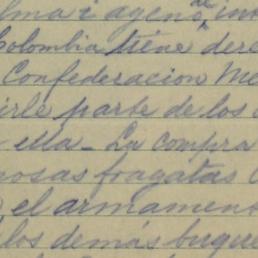 lma i ageno, de int
Colombia tiene dere
Confederacion Me
irle parte de los
ella - La compra
osas fragatas
el armament
los demás buque